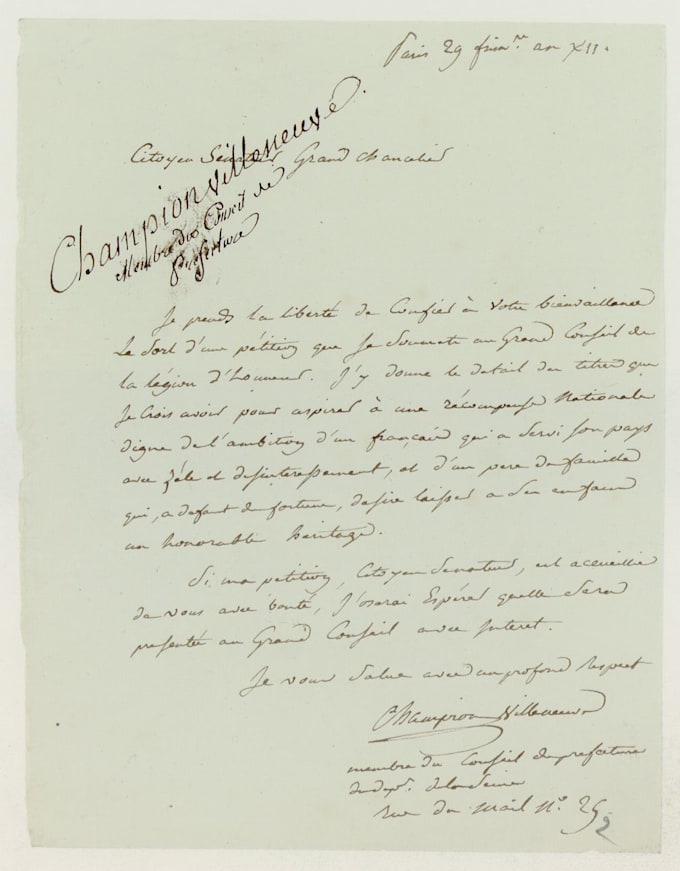 Paris 29 frim.re an XII.
Citoyen Sénateur Grand Chancelier
Champion Villeneuve.
Membre du Conseil de
Préfecture
Je prends la liberté de Confier à votre bienveillance
le Sort d'une pétition que je Soumets au Grand Conseil de
la légion d'honneur. J'y donne le detail des titres que
Je Crois avoir pour aspirer à une récompense Nationale
digne de l'ambition d'un français qui a Servi Son pays
avec zèle et desinteressement, et d'un pere de famille
qui, a defaut de fortune, desire laisser a Ses enfans
un honorable héritage.
Si ma petition, Citoyen Senateur, est accueillie
de vous avec bonté, J'oserai Espérer quelle Sera
presentée au Grand Conseil avec Interet.
Je vous Salue avec un profond respect
Champion Villeneuve
membre du Conseil de prefecture
du dep.t de la Seine
rue du Mail N.o 29
2